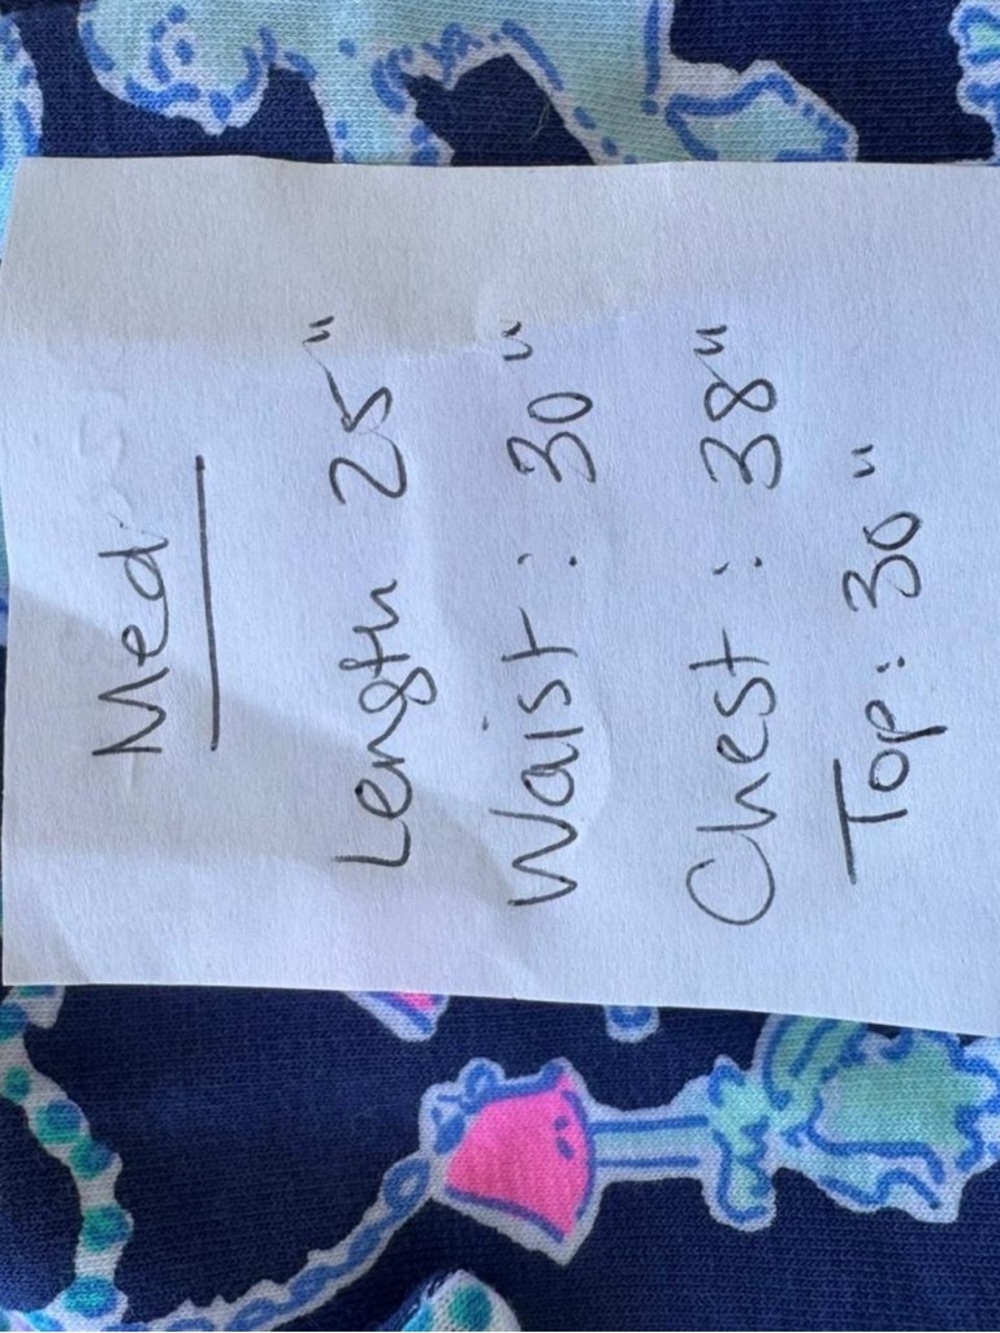 Med
Length 25"
Waist: 30"
Chest: 38"
Top: 30"